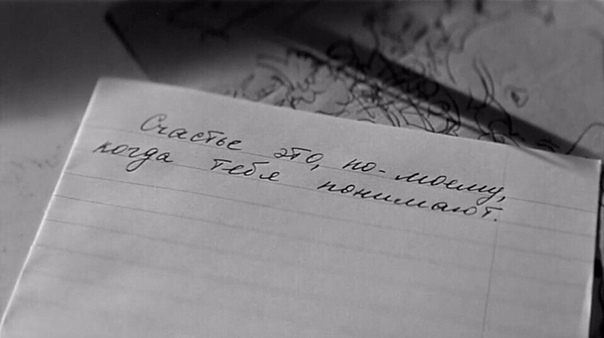 Счастье это, по-моему,
когда тебя понимают.